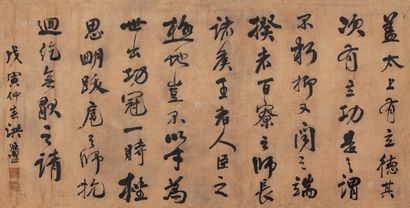 蓋太上有立德其
次有立功是之謂
不朽抑又聞之端
揆者百寮之師長
諸侯王者人臣之
極地豈不以才為
世出功冠一時挫
思明跋扈之師抗
迴紇無厭之請
戊寅仲春洪